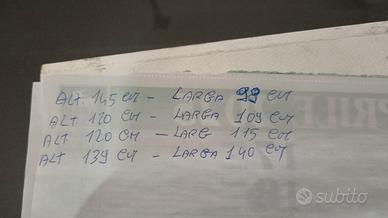 ALT 145 CM - LARGA 98 CM
ALT 120 CM - LARGA 109 CM
ALT 120 CM - LARG 115 CM
ALT 139 CM - LARGA 140 CM
subito